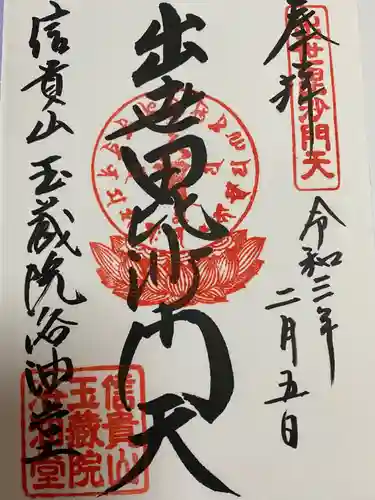 奉拝
出世毘沙門天
令和三年
二月五日
出世毘沙門天
信貴山 玉蔵院 浴油堂
信貴山
玉蔵院
浴油堂